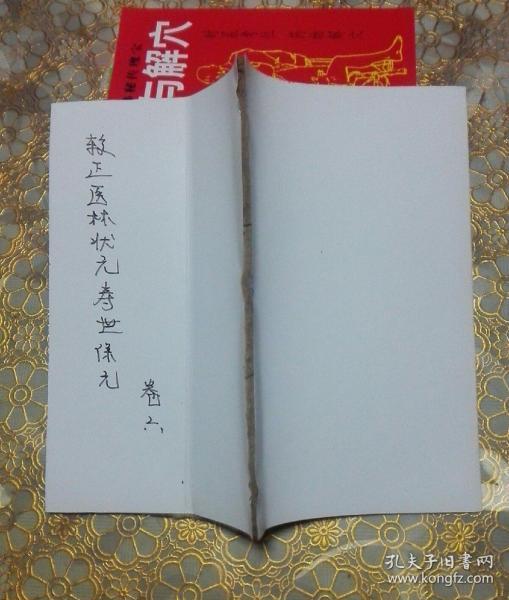 较正医林状元寿世保元
卷六
与解穴
孔夫子旧书网
www.kongfz.com